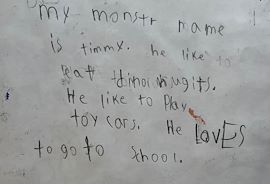 my monstr name
is timmy. he like to
eat dinor nugits.
He like to Play
toy cars. He LovES
to go to School.